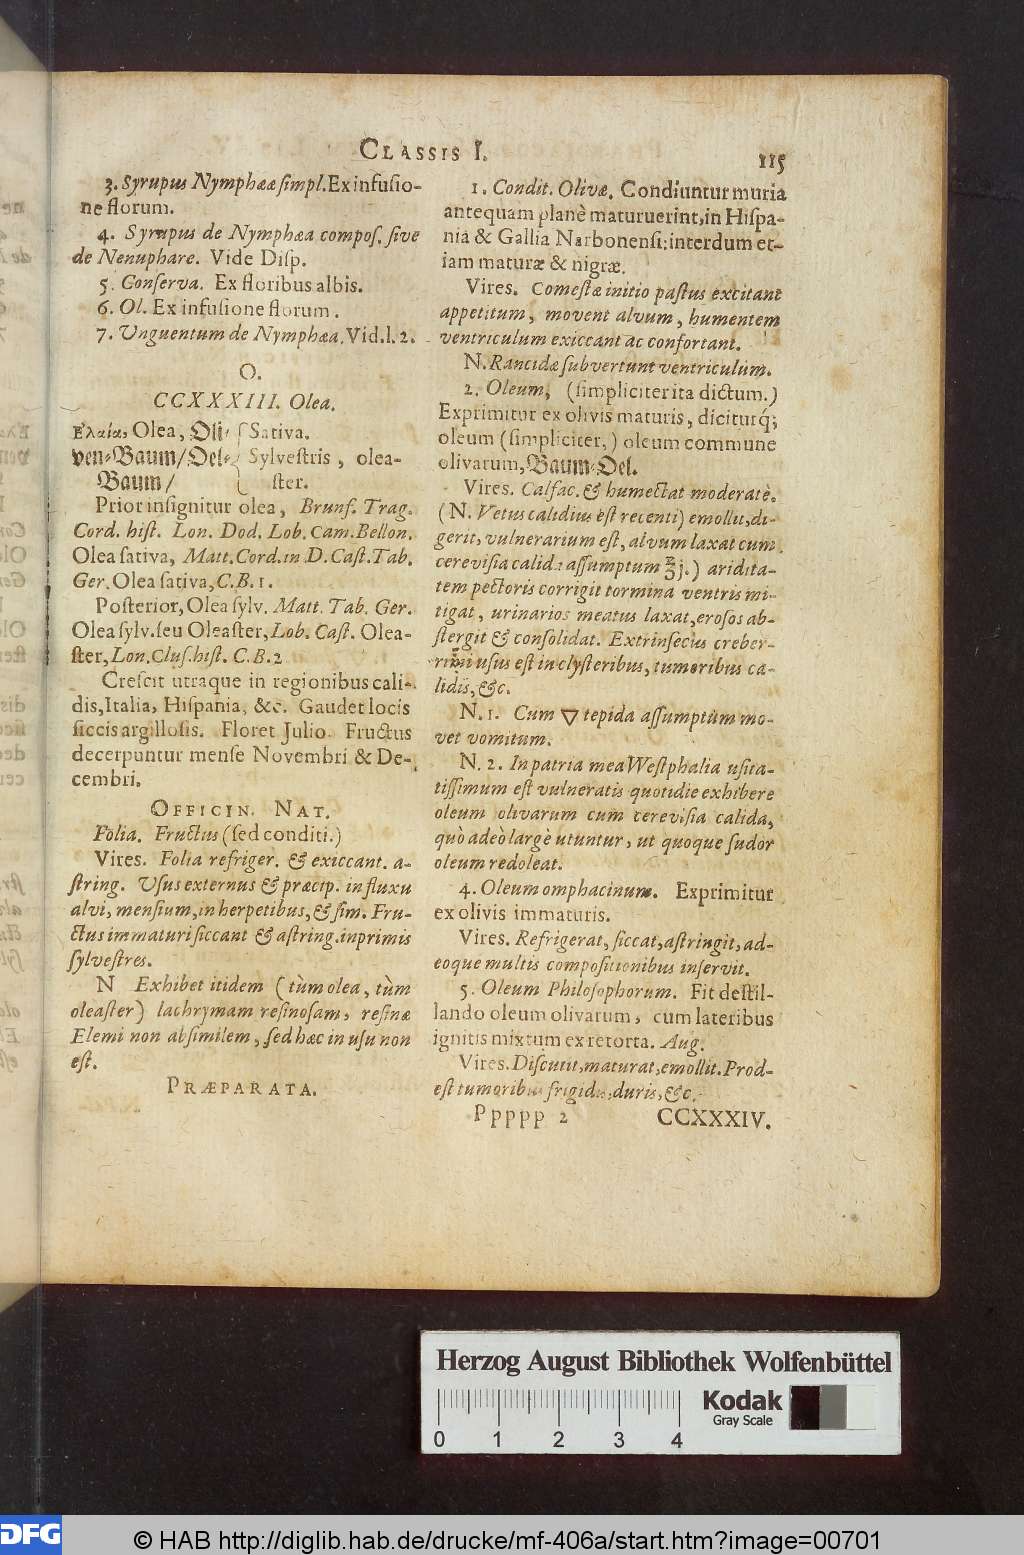 CLASSIS I.
115
3. Syrupus Nymphææ simpl. Ex infusio-
ne florum.
4. Syrupus de Nymphæa compos. sive
de Nenuphare. Vide Disp.
5. Conserva. Ex floribus albis.
6. Ol. Ex infusione florum.
7. Unguentum de Nymphæa. Vid. l. 2.
O.
CCXXXIII. Olea.
Ελαία, Olea, Oli- Sativa.
ven-Baum/Oel- Sylvestris, olea-
Baum/ ster.
Prior insignitur olea, Brunf. Trag.
Cord. hist. Lon. Dod. Lob. Cam. Bellon.
Olea sativa, Matt. Cord. in D. Cast. Tab.
Ger. Olea sativa, C. B. 1.
Posterior, Olea sylv. Matt. Tab. Ger.
Olea sylv. seu Oleaster, Lob. Cast. Olea-
ster, Lon. Clus. hist. C. B. 2
Crescit utraque in regionibus cali-
dis, Italia, Hispania, &c. Gaudet locis
siccis argillosis. Floret Julio. Fructus
decerpuntur mense Novembri & De-
cembri.
OFFICIN. NAT.
Folia. Fructus (sed conditi.)
Vires. Folia refriger. & exiccant. a-
string. Usus externus & præcip. in fluxu
alvi, mensium, in herpetibus, & sim. Fru-
ctus immaturi siccant & astring. inprimis
sylvestres.
N Exhibet itidem (tùm olea, tùm
oleaster) lachrymam resinosam, resinæ
Elemi non absimilem, sed hæc in usu non
est.
PRÆPARATA.
1. Condit. Olivæ. Condiuntur muria
antequam planè maturuerint, in Hispa-
nia & Gallia Narbonensi; interdum et-
iam maturæ & nigræ.
Vires. Comestæ initio pastus excitant
appetitum, movent alvum, humentem
ventriculum exiccant ac confortant.
N. Rancidæ subvertunt ventriculum.
2. Oleum, (simpliciter ita dictum.)
Exprimitur ex olivis maturis, diciturq́;
oleum (simpliciter,) oleum commune
olivarum, Baum-Oel.
Vires. Calfac. & humectat moderatè.
(N. Vetus calidius est recenti) emollit, di-
gerit, vulnerarium est, alvum laxat cum
cerevisia calida assumptum ℥j.) aridita-
tem pectoris corrigit tormina ventris mi-
tigat, urinarios meatus laxat, erosos ab-
stergit & consolidat. Extrinsecus creber-
rimi usus est in clysteribus, tumoribus ca-
lidis, &c.
N. 1. Cum ▽ tepida assumptum mo-
vet vomitum.
N. 2. In patria mea Westphalia usita-
tissimum est vulneratis quotidie exhibere
oleum olivarum cum cerevisia calida,
quò adeò largè utuntur, ut quoque sudor
oleum redoleat.
4. Oleum omphacinum. Exprimitur
ex olivis immaturis.
Vires. Refrigerat, siccat, astringit, ad-
eoque multis compositionibus inservit.
5. Oleum Philosophorum. Fit destil-
lando oleum olivarum, cum lateribus
ignitis mixtum ex retorta. Aug.
Vires. Discutit, maturat, emollit. Prod-
est tumoribus frigidis, duris, &c.
Ppppp 2 CCXXXIV.
Herzog August Bibliothek Wolfenbüttel
Kodak
Gray Scale
0 1 2 3 4
DFG
© HAB http://diglib.hab.de/drucke/mf-406a/start.htm?image=00701